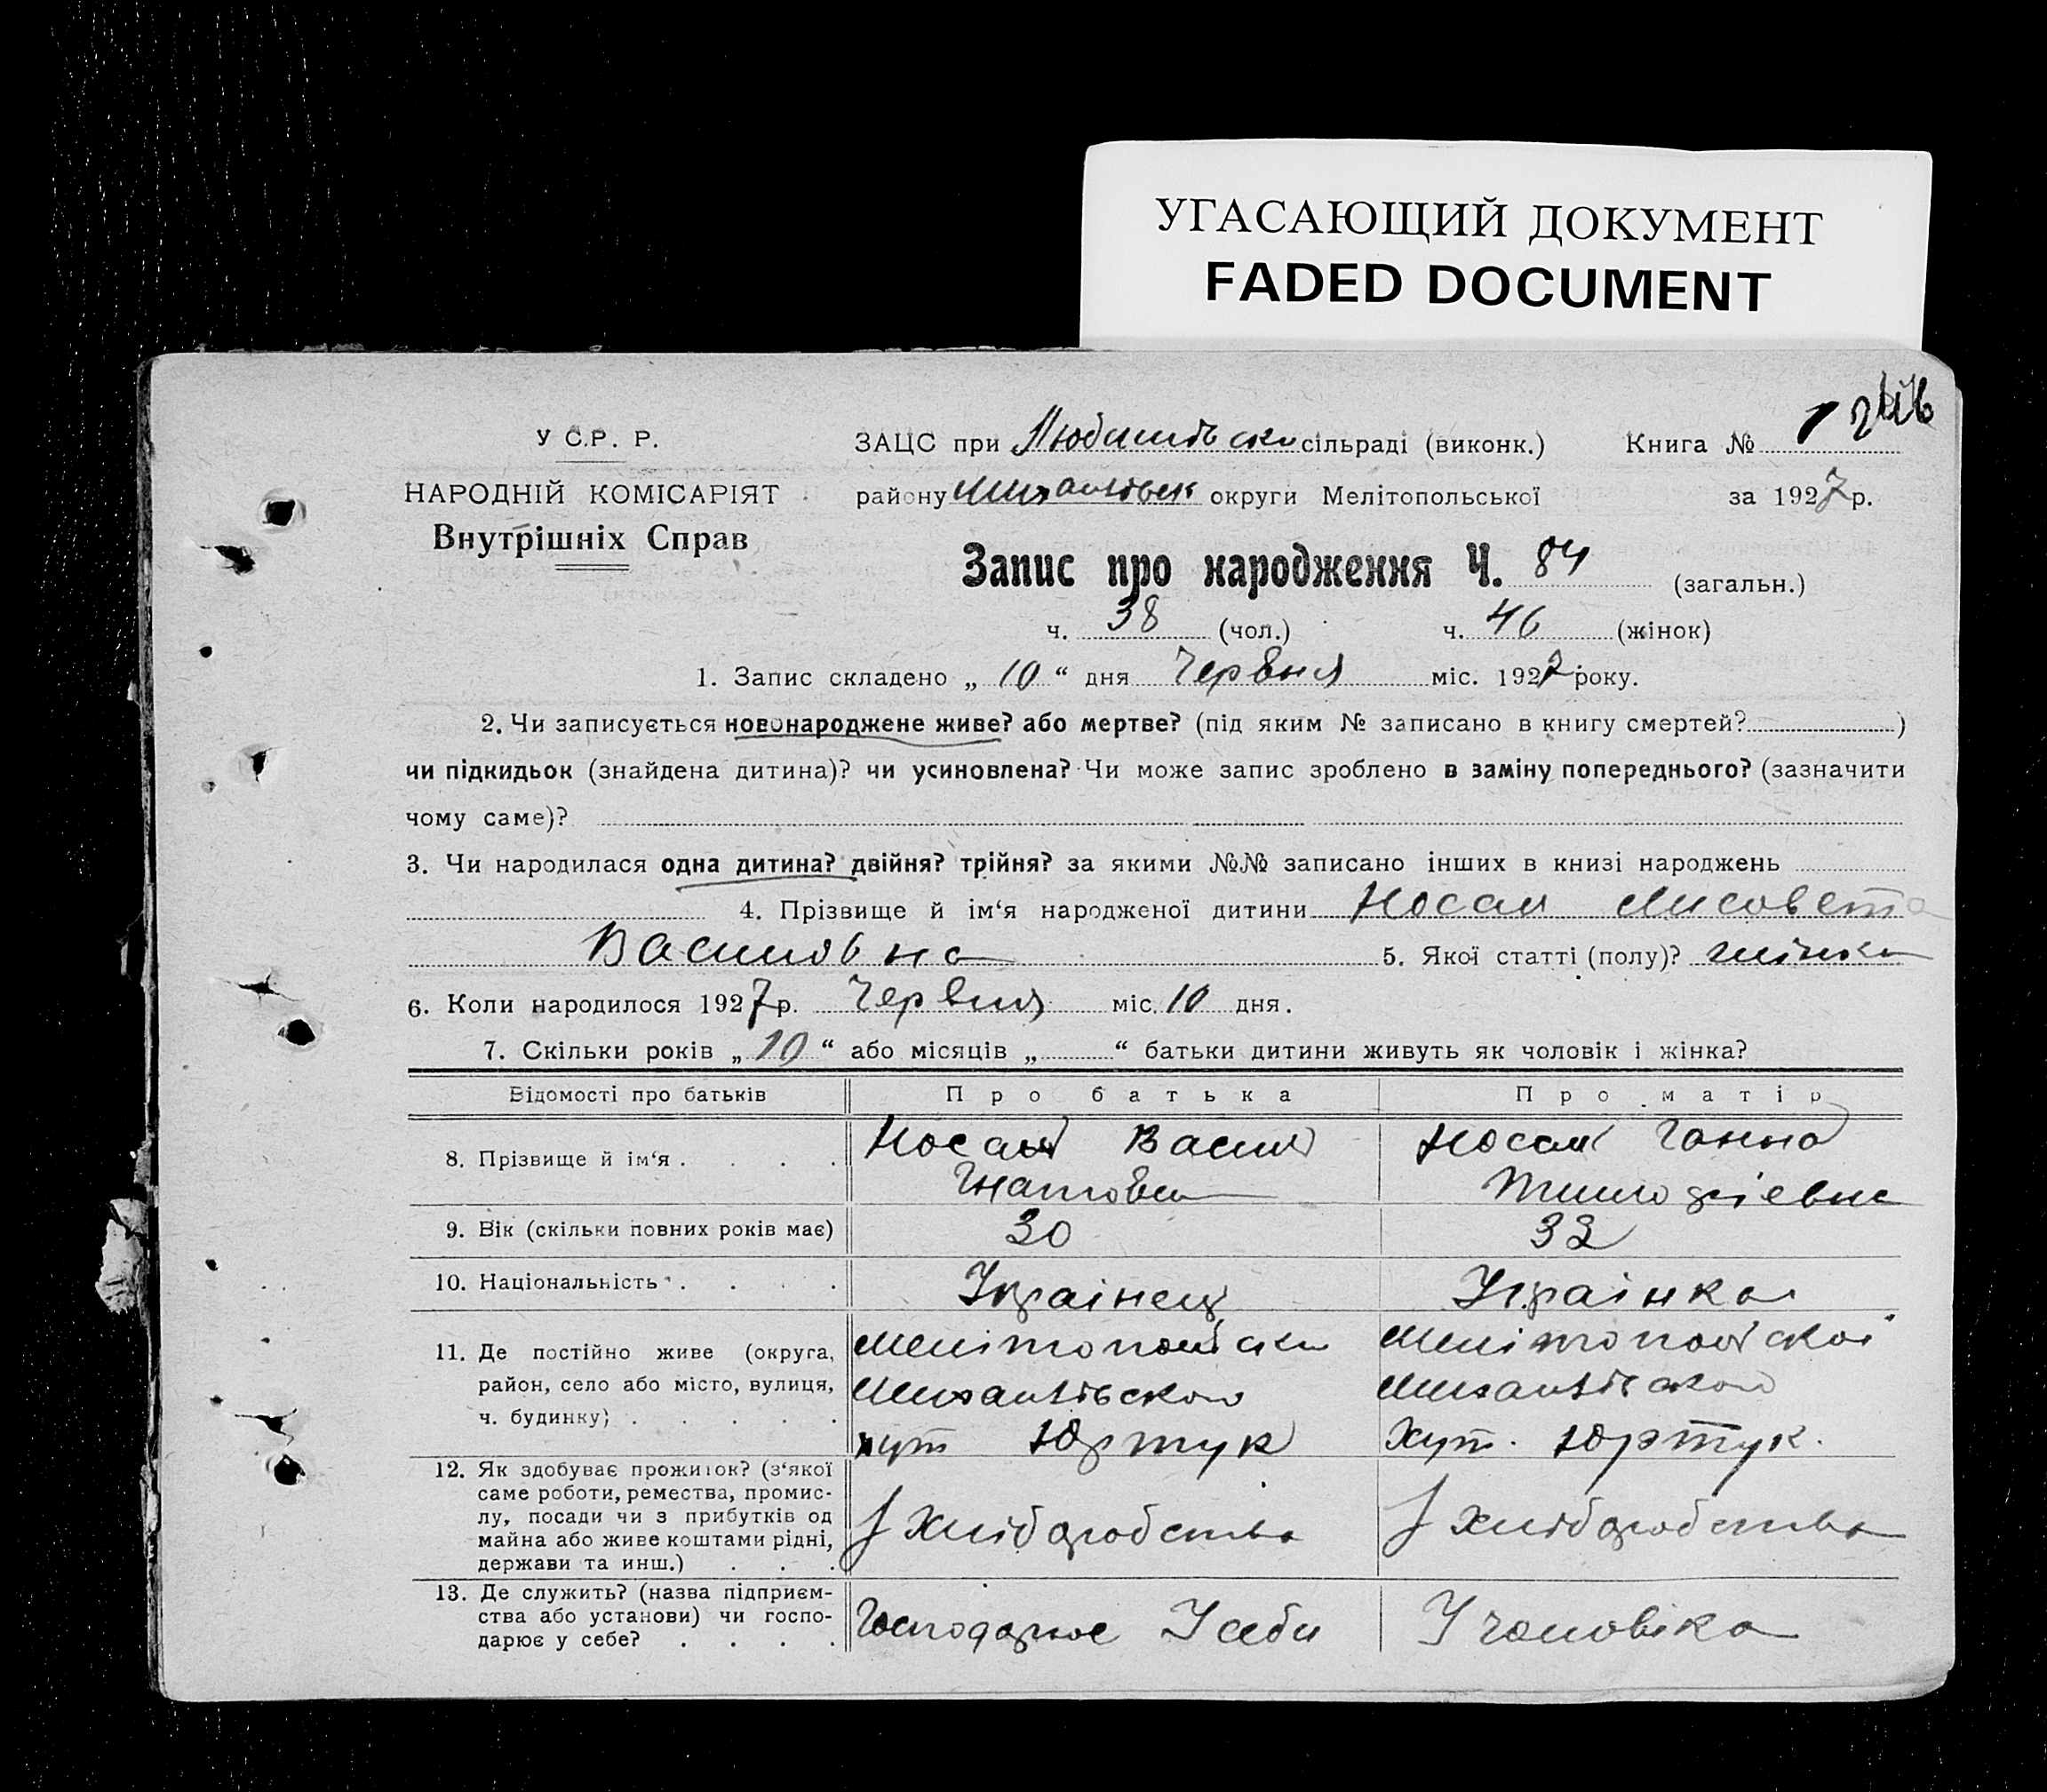 УГАСАЮЩИЙ ДОКУМЕНТ
FADED DOCUMENT
У С.Р. Р.
НАРОДНІЙ КОМІСАРІЯТ
Внутрішніх Справ
ЗАЦС при сільраді (виконк.) Книга № 1
району округи Мелітопольської за 1927 р.
Запис про народження Ч. 84 (загальн.)
ч. 38 (чол.) ч. 46 (жінок)
1. Запис складено „ 10 “ дня Червня міс. 1927 року.
2. Чи записується новонароджене живе? або мертве? (під яким № записано в книгу смертей? )
чи підкидьок (знайдена дитина)? чи усиновлена? Чи може запис зроблено в заміну попереднього? (зазначити
чому саме)?
3. Чи народилася одна дитина? двійня? трійня? за якими №№ записано інших в книзі народжень
4. Прізвище й ім‘я народженої дитини Носаль Лисовета
Василівна 5. Якої статті (полу)? жінка
6. Коли народилося 1927 р. Червня міс. 10 дня.
7. Скільки років „ 10 “ або місяців „ “ батьки дитини живуть як чоловік і жінка?
Відомості про батьків Про батька Про матір
8. Прізвище й ім‘я . . . . Носаль Василь Носаль Ганна
Гнатович
9. Вік (скільки повних років має) 30 32
10. Національність . . . . Українець Українка
11. Де постійно живе (округа, район, село або місто, вулиця, ч. будинку) . . . . .
Мелітопольськ Мелітопольскоі
Михайлівского Михайлівского
хут Юртук Хут. Юртук.
12. Як здобуває прожиток? (з‘якої саме роботи, ремества, промислу, посади чи з прибутків од майна або живе коштами рідні, держави та инш.) . . .
З хліборобства З хліборобства
13. Де служить? (назва підприємства або установи) чи господарює у себе? . . . .
Господарює У себи У чоловіка